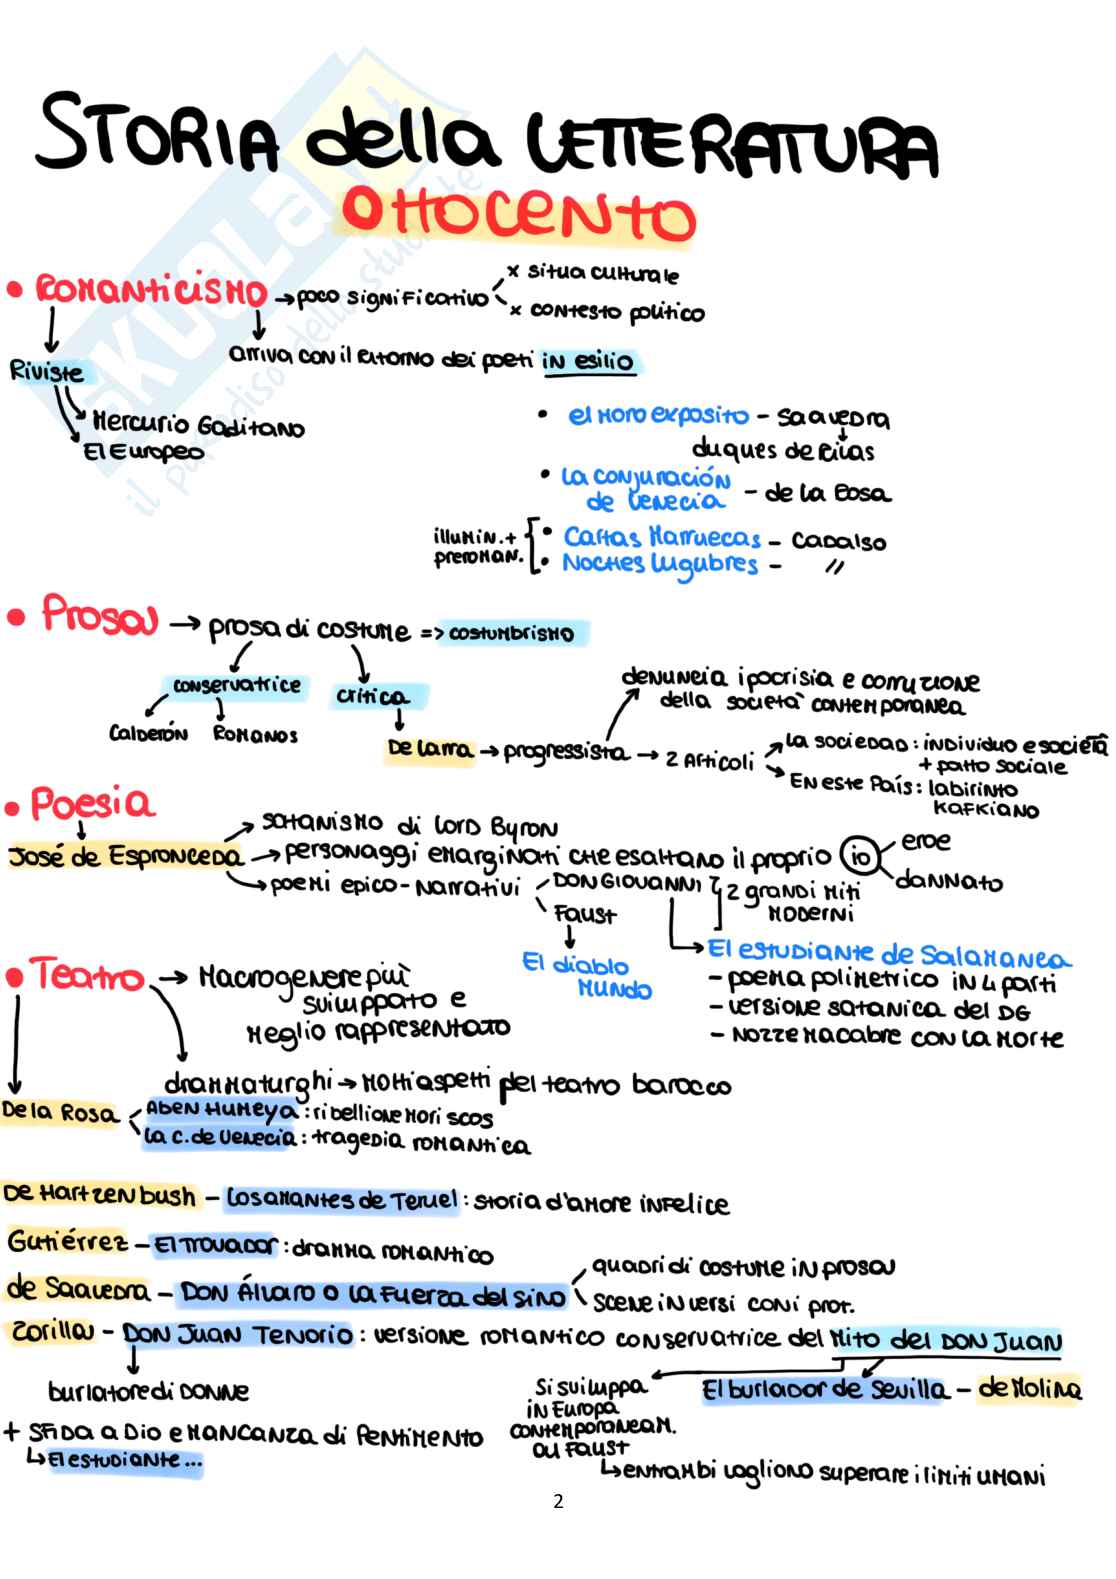 STORIA della LETTERATURA
OTTOCENTO
• ROMANTICISMO → poco significativo
x situa culturale
x contesto politico
arriva con il ritorno dei poeti in esilio
Riviste
Mercurio Gaditano
El Europeo
• el moro exposito - Saavedra
duques de Rivas
• La conjuración
de Venecia - de la Rosa
illumin. +
preroman.
• Cartas Marruecas - Cadalso
• Noches lugubres - //
• Prosa → prosa di costume => costumbrismo
conservatrice
critica
Calderón Romanos
denuncia ipocrisia e corruzione
della società contemporanea
De Larra → progressista → 2 Articoli
La sociedad : individuo e società
+ patto sociale
En este País : labirinto
kafkiano
• Poesia
José de Espronceda
→ satanismo di Lord Byron
→ personaggi emarginati che esaltano il proprio io
eroe
dannato
→ poemi epico-narrativi
DON GIOVANNI
Faust
2 grandi miti
moderni
El diablo
mundo
El estudiante de Salamanca
- poema polimetrico in 4 parti
- versione satanica del DG
- nozze macabre con la morte
• Teatro → Macrogenere più
sviluppato e
meglio rappresentato
drammaturghi → molti aspetti del teatro barocco
De la Rosa
Aben Humeya : ribellione moriscos
La C. de Venecia : tragedia romantica
De Hartzenbush - Los amantes de Teruel : storia d'amore infelice
Gutiérrez - El Trovador : dramma romantico
de Saavedra - DON Álvaro o la Fuerza del sino
quadri di costume in prosa
scene in versi con i prot.
Zorilla - DON JUAN TENORIO : versione romantico conservatrice del Mito del DON JUAN
burlatore di DONNE
+ sfida a Dio e mancanza di pentimento
↳ El estudiante ...
Si sviluppa
in Europa
contemporaneam.
al Faust
El burlador de Sevilla - de Molina
↳ entrambi vogliono superare i limiti umani
2
SKUOLA.net
il paradiso dello studente